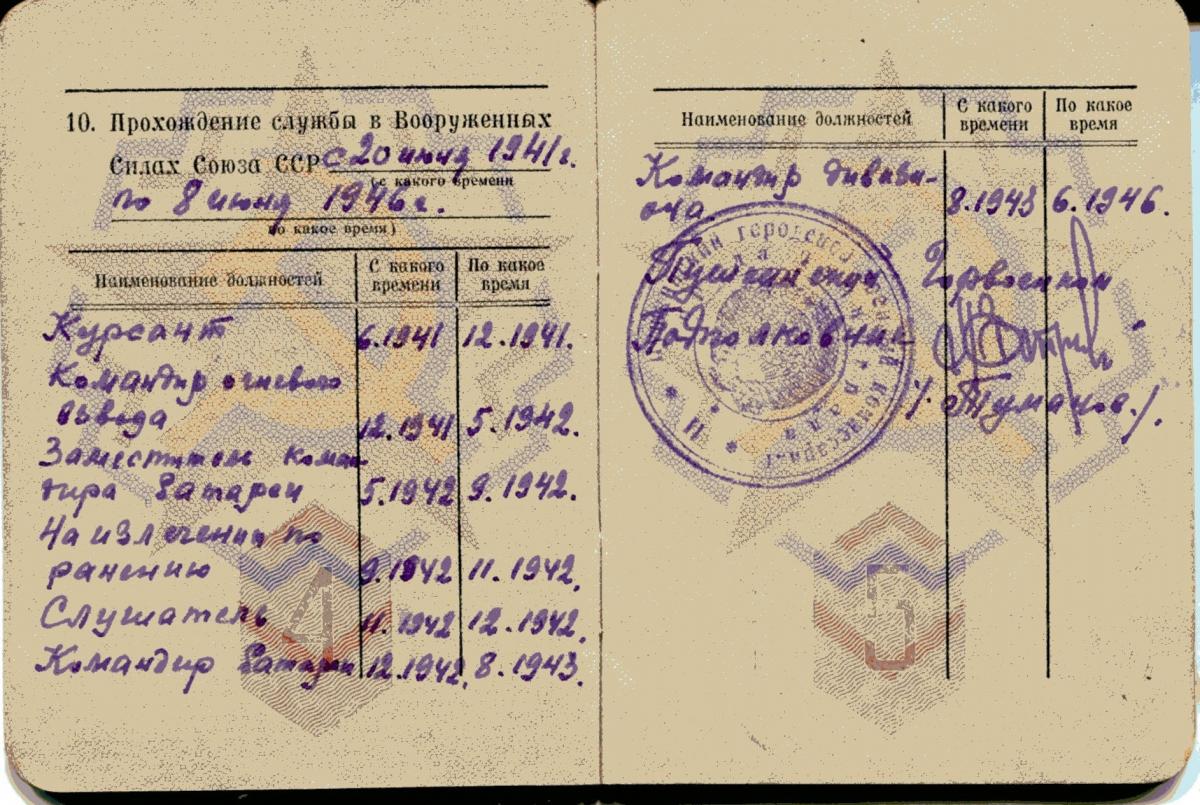 10. Прохождение службы в Вооруженных
Силах Союза ССР с 20 июня 1941 г.
(с какого времени
по 8 июня 1946 г.
по какое время)
Наименование должностей С какого времени По какое время
Курсант 6.1941 12.1941.
Командир огневого
взвода 12.1941 5.1942.
Заместитель коман-
дира батареи 5.1942 9.1942.
На излечении по
ранению 9.1942 11.1942.
Слушатель 11.1942 12.1942.
Командир батареи 12.1942. 8.1943.
4
Наименование должностей С какого времени По какое время
Командир дивизи-
она. 8.1943 6.1946.
Горвоенком
Подполковник
/. Туманов./.
5